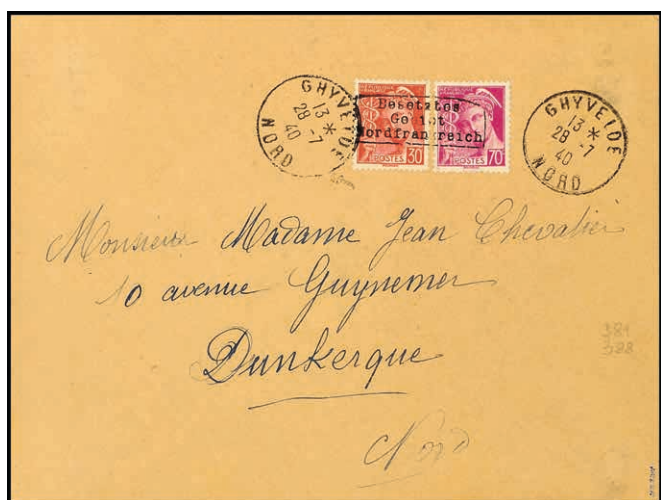 GHYVELDE
13 *
28 -7
40
NORD
RÉPUBLIQUE FRANÇAISE
Besetztes
Gebiet
Nordfrankreich
POSTES 30
POSTES 70
GHYVELDE
13 *
28 -7
40
NORD
Monsieur Madame Jean Chevalier
10 avenue Guynemer
Dunkerque
Nord
381
388